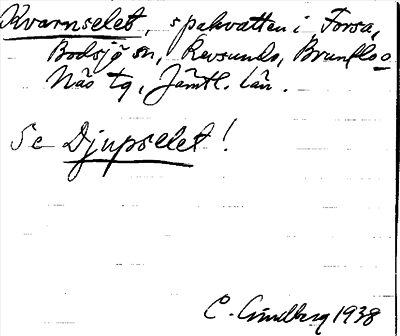 Kvarnselet, spakvatten i Forsa,
Bodsjö sn, Revsunds, Brunflo o
Näs tg, Jämtl. län.
Se Djupselet!
C. Lindberg 1938